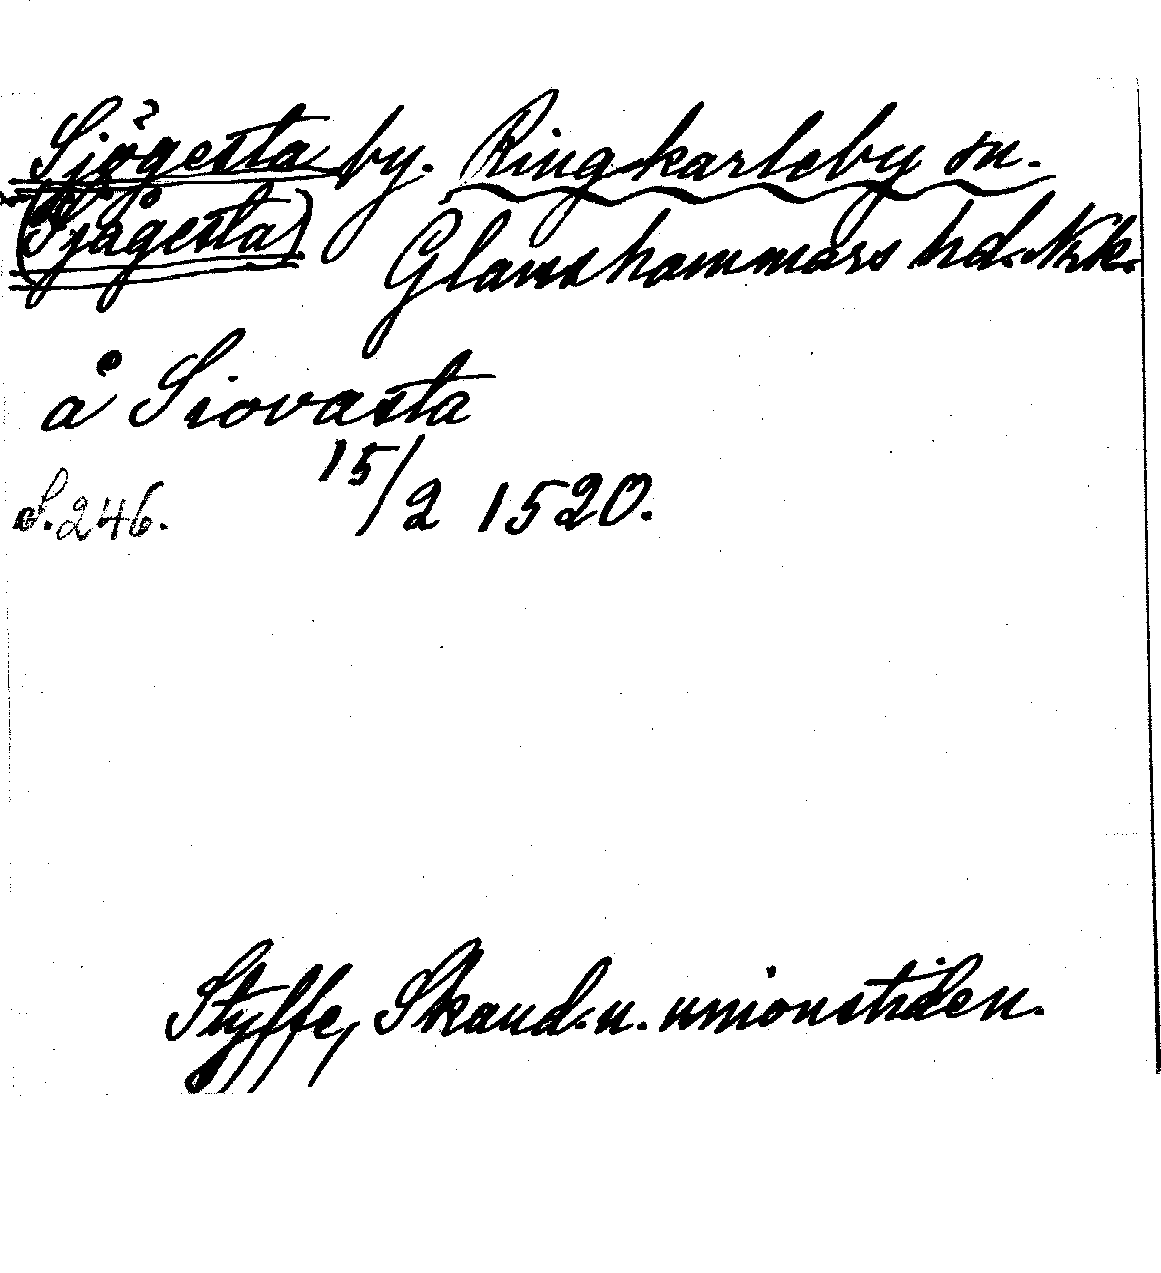 Sjögesta by. Ringkarleby sn.
(Sjågesta) Glanshammars hd. Nrk.
å Siovasta
15/2 1520.
S. 246.
Styffe, Skand. u. unionstiden.